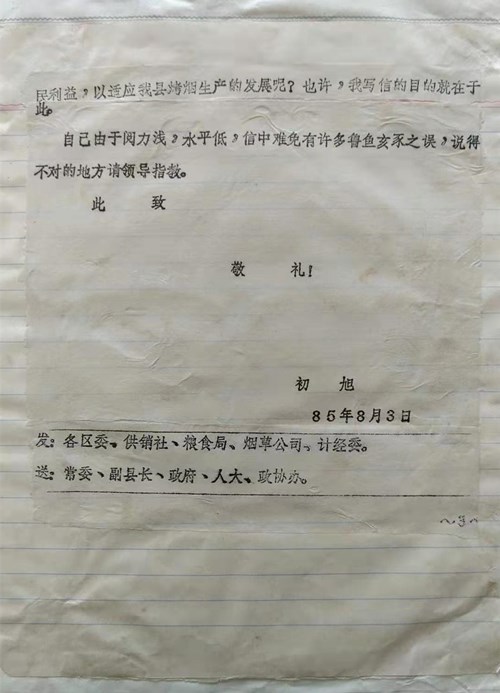 民利益，以适应我县烤烟生产的发展呢？也许，我写信的目的就在于
此。
自己由于阅力浅，水平低，信中难免有许多鲁鱼亥豕之误，说得
不对的地方请领导指教。
此 致
敬 礼！
初 旭
85年8月3日
发：各区委、供销社、粮食局、烟草公司、计经委。
送：常委、副县长、政府、人大、政协办。
～5～